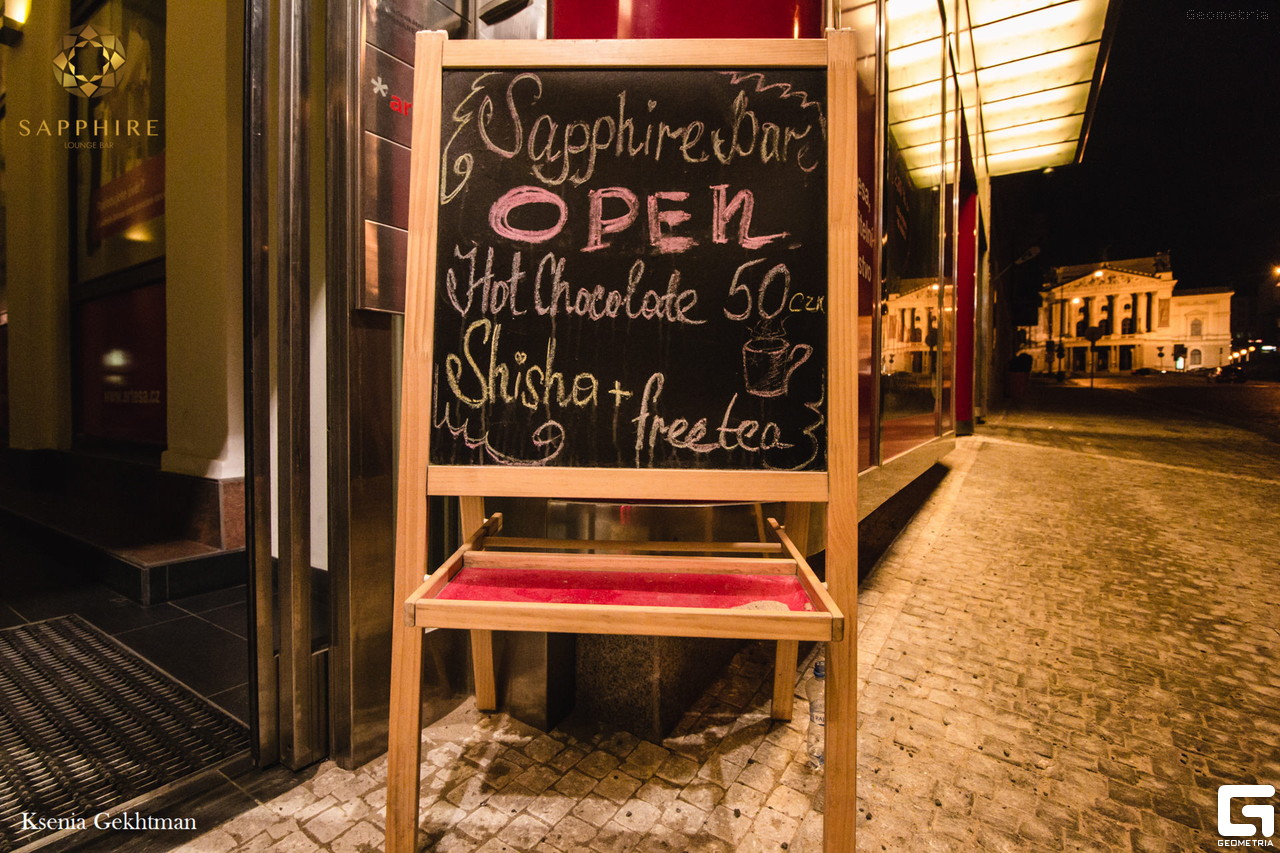 Geometria
SAPPHIRE
LOUNGE BAR
*ar
Sapphire Bar
OPEN
Hot Chocolate 50 CZK
Shisha + free tea
www.artesa.cz
Ksenia Gekhtman
GEOMETRIA